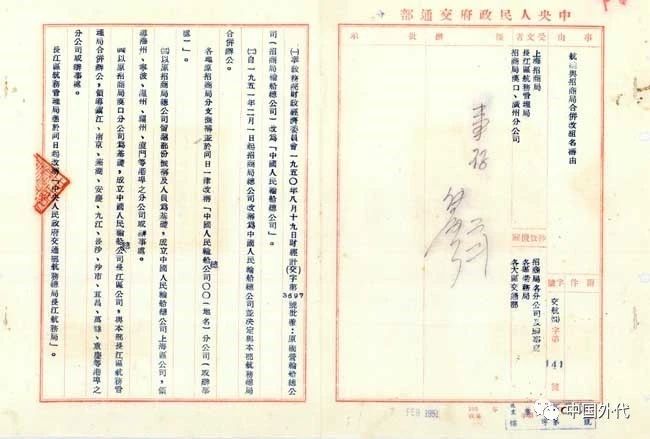 中央人民政府交通部
事由
航務與招商局合併改組名稱由
受文者
上海招商局
長江區航務管理局
招商局漢口、廣州分公司
擬辦
批示
招商局各分公司及辦事處
各區港務局
各大區交通部
附件
字號
交航(51)字第
141
號
FEB 1951
㈠奉政務院財政經濟委員會一九五〇年八月十九日財經計(交)字第3697號批覆:原國營輪船總公
司(招商局輪船總公司)改爲「中國人民輪船總公司」。
㈡自一九五一年二月一日起招商局總公司改稱爲中國人民輪船總公司並決定與本部航務總局
合併辦公。
各地原招商局分支機構並於同日一律改稱「中國人民輪船總公司〇〇(地名)分公司(或辦事
處)」。
㈢以原招商局總公司留滬部份機構及人員爲基礎,成立中國人民輪船總公司上海區公司,領
導溫州、寧波、福州、廈門等港埠之分公司或辦事處。
㈣以原招商局漢口分公司爲基礎,成立中國人民輪船總公司長江區公司,與本部長江區航務管
理局合併辦公,領導鎮江、南京、蕪湖、安慶、九江、長沙、沙市、宜昌、萬縣、重慶等港埠之
分公司或辦事處。
長江區航務管理局應於同日起改稱「中央人民政府交通部航務總局長江航務局」。
中国外代